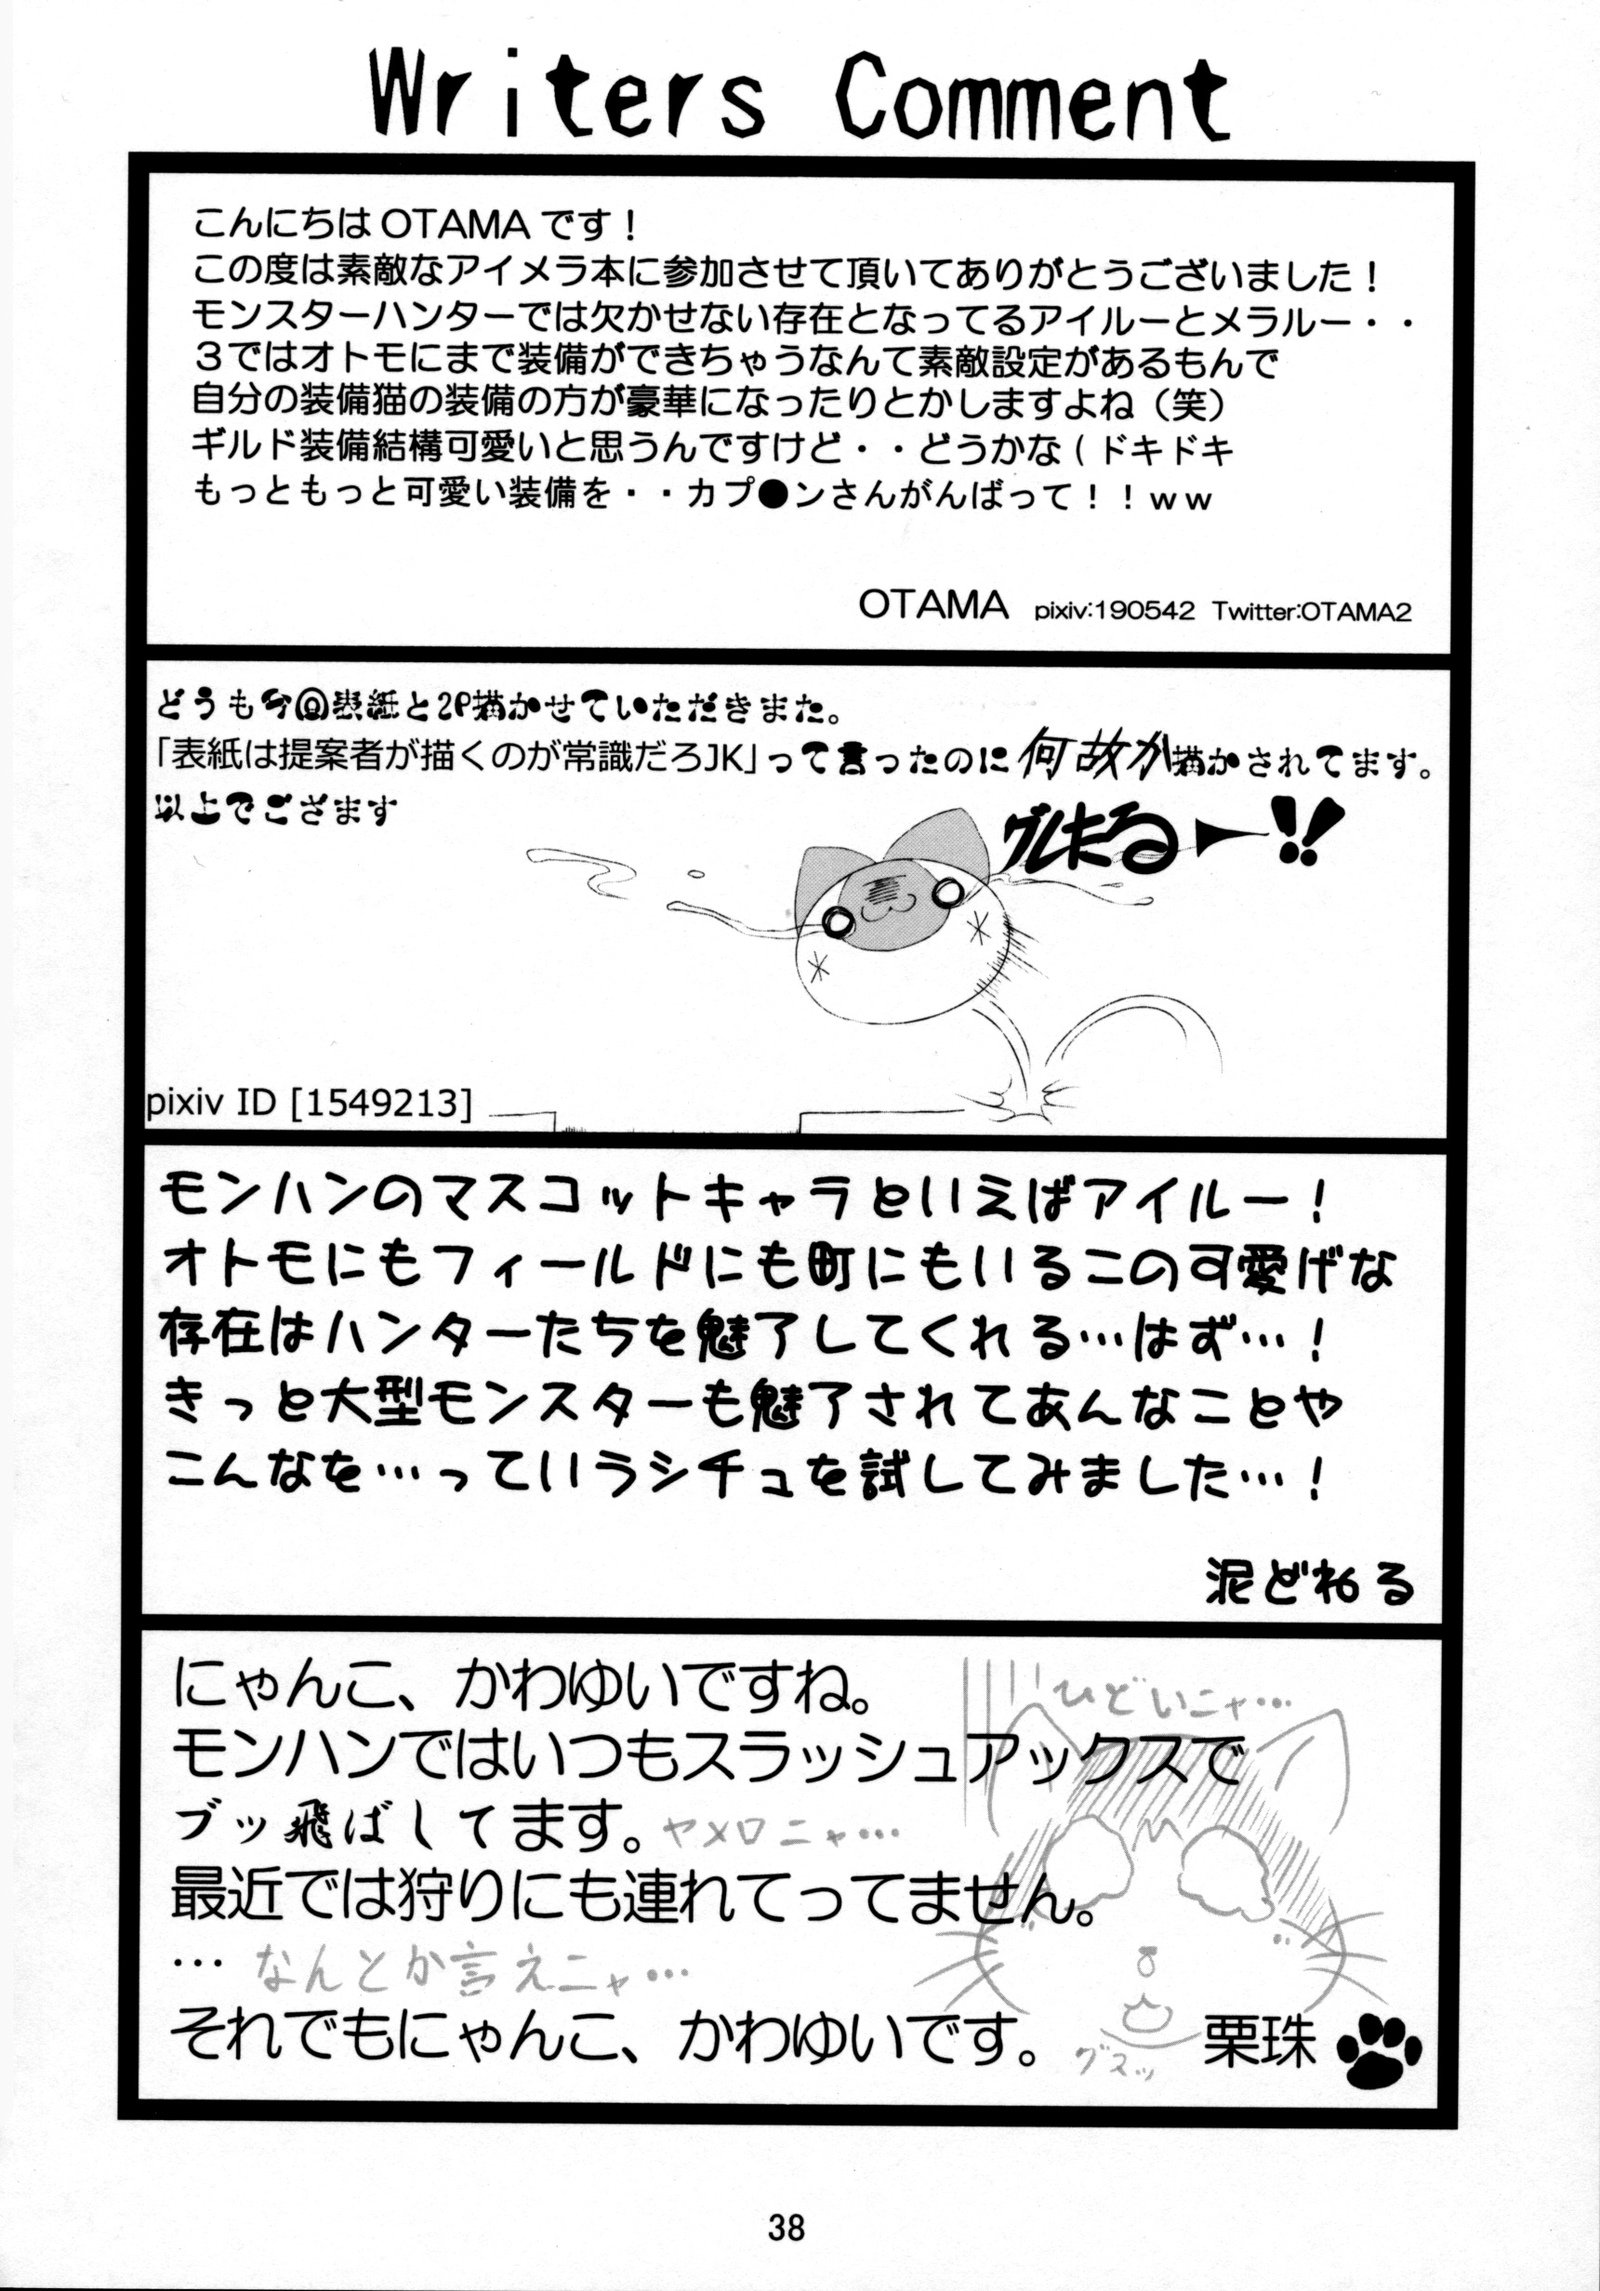 Writers Comment
こんにちは OTAMA です！
この度は素敵なアイメラ本に参加させて頂いてありがとうございました！
モンスターハンターでは欠かせない存在となってるアイルーとメラルー・・
３ではオトモにまで装備ができちゃうなんて素敵設定があるもんで
自分の装備猫の装備の方が豪華になったりとかしますよね（笑）
ギルド装備結構可愛いと思うんですけど・・どうかな（ドキドキ
もっともっと可愛い装備を・・カプ●ンさんがんばって！！ｗｗ
OTAMA pixiv:190542 Twitter:OTAMA2
どうも今回表紙と2P描かせていただきまた。
「表紙は提案者が描くのが常識だろJK」って言ったのに何故か描かされてます。
以上でござます
pixiv ID [1549213]
モンハンのマスコットキャラといえばアイルー！
オトモにもフィールドにも町にもいるこの可愛げな
存在はハンターたちを魅了してくれる…はず…！
きっと大型モンスターも魅了されてあんなことや
こんなを…っていうシチュを試してみました…！
泥どねる
にゃんこ、かわゆいですね。
ひどいニャ…
モンハンではいつもスラッシュアックスで
ブッ飛ばしてます。ヤメロニャ…
最近では狩りにも連れてってません。
… なんとか言えニャ…
それでもにゃんこ、かわゆいです。
グスッ
栗珠
38